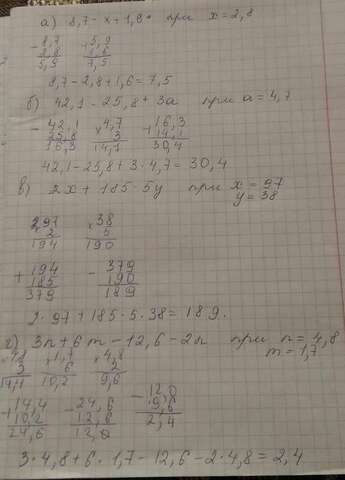 а) 8,7 - x + 1,6 при x = 2,8
- 8,7 + 5,9
2,8 1,6
5,9 7,5
8,7 - 2,8 + 1,6 = 7,5
б) 42,1 - 25,8 + 3a при a = 4,7
- 42,1 × 4,7 + 16,3
25,8 3 14,1
16,3 14,1 30,4
42,1 - 25,8 + 3 · 4,7 = 30,4
в) 2x + 185 - 5y при x = 97
y = 38
× 97 × 38
2 5
194 190
+ 194 - 379
185 190
379 189
2 · 97 + 185 - 5 · 38 = 189.
г) 3n + 6m - 12,6 - 2n при n = 4,8
m = 1,7
× 4,8 × 1,7 × 4,8
3 6 2
14,4 10,2 9,6
+ 14,4 - 24,6 - 12,0
10,2 12,6 9,6
24,6 12,0 2,4
3 · 4,8 + 6 · 1,7 - 12,6 - 2 · 4,8 = 2,4